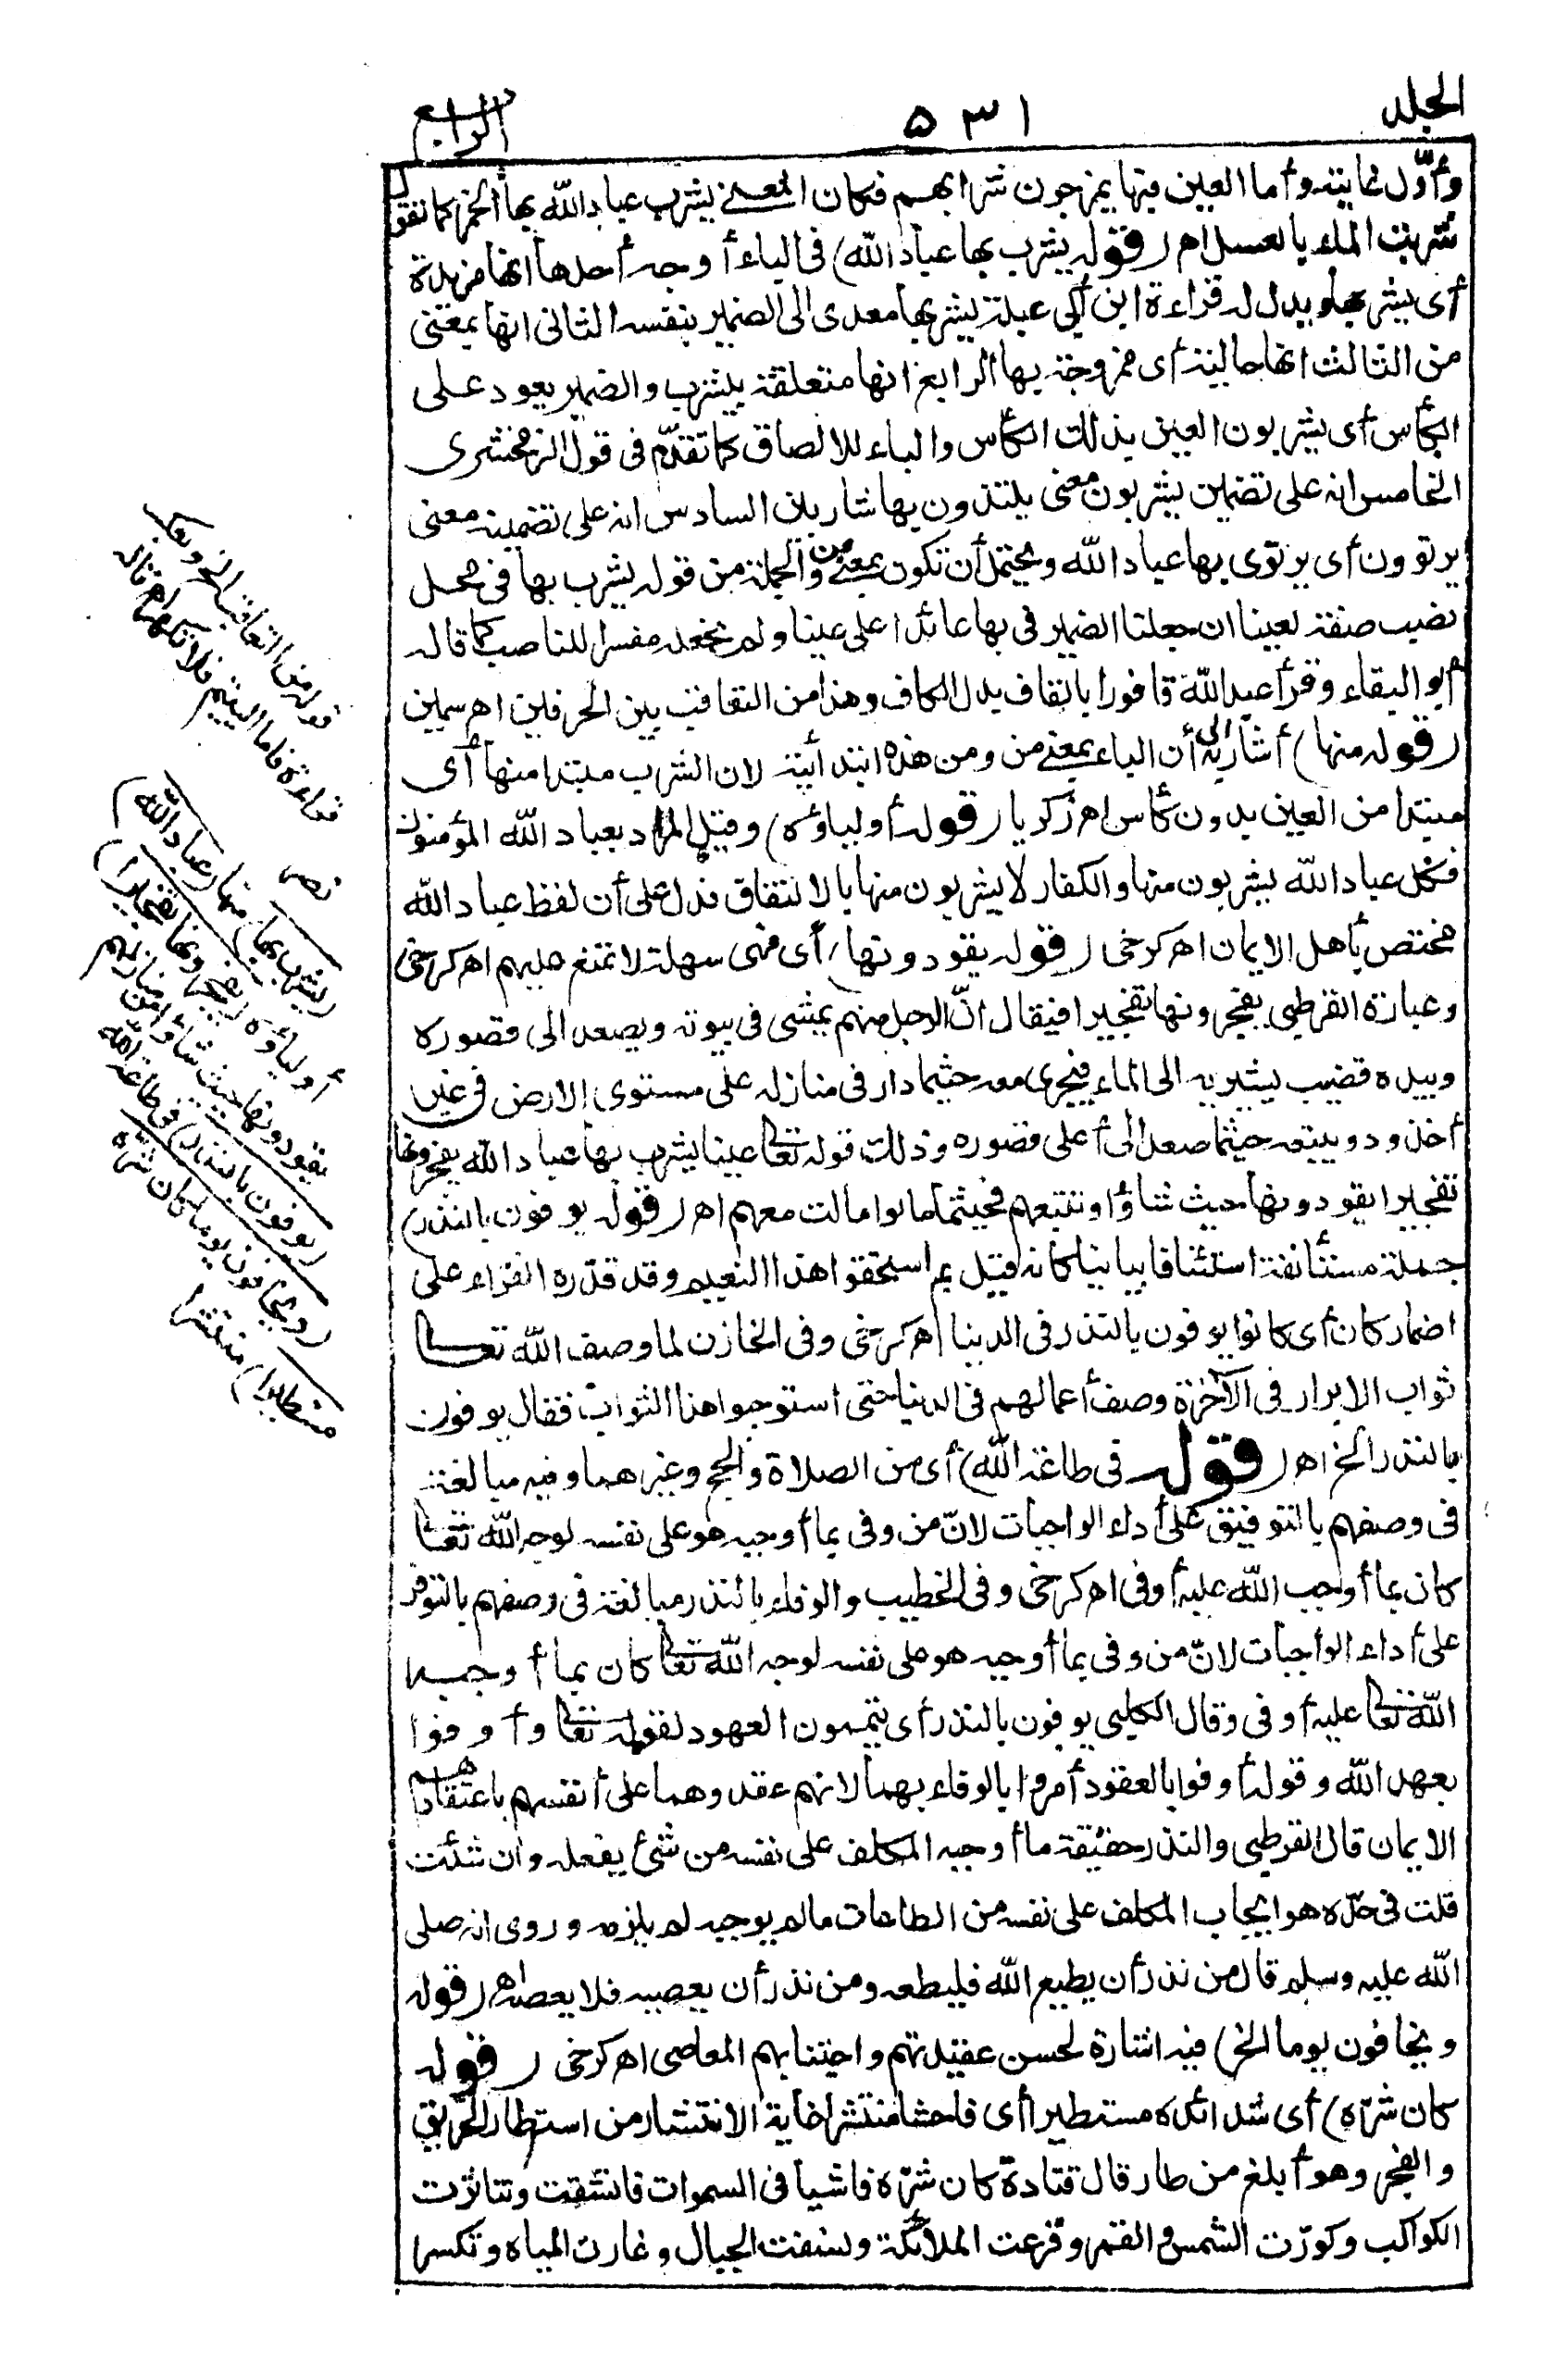 الجلد
٥٣١
الرابع
وأوّل غايته وأما العين فبها يمزجون شرابهم فكان المعنى يشرب عباد الله بها الخمر كما تقول
شربت الماء بالعسل اه (قوله يشرب بها عباد الله) فى الباء أوجه أحدها انها مزيدة
أى يشربها ويدل له قراءة ابن أبى عبلة يشربها معدى الى الضمير بنفسه الثانى انها بمعنى
من الثالث انها حالية أى ممزوجة بها الرابع انها متعلقة بيشرب والضمير يعود على
الكأس أى يشربون العين بذلك الكأس والباء للالصاق كما تقدّم فى قول الزمخشرى
الخامس انه على تضمين يشربون معنى يلتذون بها شاربين السادس انه على تضمينه معنى
يرتوون أى يرتوى بها عباد الله ويحتمل أن تكون بمعنى من والجملة من قوله يشرب بها فى محل
نصب صفة لعينا ان جعلنا الضمير فى بها عائدا على عينا ولم نجعله مفسرا للناصب كما قاله
أبو البقاء وقرأ عبد الله قافورا بالقاف بدل الكاف وهذا من التعاقب بين الحرفين اه سمين
(قوله منها) أشار به الى أن الباء بمعنى من ومن هذه ابتدائية لان الشرب مبتدا منها أى
مبتدا من العين بدون كأس اه زكريا (قوله أولياؤه) وقيل المراد بعباد الله المؤمنون
فكل عباد الله يشربون منها والكفار لا يشربون منها بالاتفاق فدل على أن لفظ عباد الله
مختص بأهل الايمان اه كرخى (قوله يقودونها) أى فهى سهلة لا تمتنع عليهم اه كرخى
وعبارة القرطبى يفجرونها تفجيرا فيقال انّ الرجل منهم يمشى فى بيوته ويصعد الى قصوره
وبيده قضيب يشير به الى الماء فيجرى معه حيثما دار فى منازله على مستوى الارض فى غير
أخدود ويتبعه حيثما صعد الى أعلى قصوره وذلك قوله تعالى عينا يشرب بها عباد الله يفجرونها
تفجيرا يقودونها حيث شاؤا وتتبعهم فحيثما مالوا مالت معهم اه (قوله يوفون بالنذر)
جملة مستأنفة استئنافا بيانيا كانه قيل بم استحقوا هذا النعيم وقد قدّره الفراء على
اضمار كان أى كانوا يوفون بالنذر فى الدنيا اه كرخى وفى الخازن لما وصف الله تعالى
ثواب الابرار فى الآخرة وصف أعمالهم فى الدنيا حتى استوجبوا هذا الثواب فقال يوفون
بالنذر الخ اه (قوله فى طاعة الله) أى من الصلاة والحج وغيرهما وفيه مبالغة
فى وصفهم بالتوفيق على أداء الواجبات لانّ من وفى بما أوجبه هو على نفسه لوجه الله تعالى
كان بما أوجب الله عليه أوفى اه كرخى وفى الخطيب والوفاء بالنذر مبالغة فى وصفهم بالتوفر
على أداء الواجبات لانّ من وفى بما أوجبه هو على نفسه لوجه الله تعالى كان بما أوجبه
الله تعالى عليه أوفى وقال الكلبى يوفون بالنذر أى يتممون العهود لقوله تعالى وأوفوا
بعهد الله وقوله أوفوا بالعقود أمروا بالوفاء بهما لانهم عقدوهما على أنفسهم باعتقادهم
الايمان قال القرطبى والنذر حقيقة ما أوجبه المكلف على نفسه من شئ يفعله وان شئت
قلت فى حدّه هو ايجاب المكلف على نفسه من الطاعات ما لم يوجبه لم يلزمه وروى انه صلى
الله عليه وسلم قال من نذر أن يطيع الله فليطعه ومن نذر أن يعصيه فلا يعصه اه (قوله
ويخافون يوما الخ) فيه اشارة لحسن عقيدتهم واجتنابهم المعاصى اه كرخى (قوله
كان شرّه) أى شدائده مستطيرا أى فاحشا منتشرا غاية الانتشار من استطار الحريق
والفجر وهو أبلغ من طار قال قتادة كان شرّه فاشيا فى السموات فانشقت وتناثرت
الكواكب وكوّرت الشمس والقمر وفزعت الملائكة ونسفت الجبال وغارت المياه وتكسر
قوله من التعاقب الخ وبعكسه
قراءة فاما اليتيم فلا تكهر اه قاله
نصر
(يشرب بها) منها (عباد الله)
أولياؤه (يفجرونها تفجيرا)
يقودونها حيث شاؤا من منازلهم
(يوفون بالنذر) فى طاعة الله
(ويخافون يوما كان شرّه
مستطيرا) منتشرا